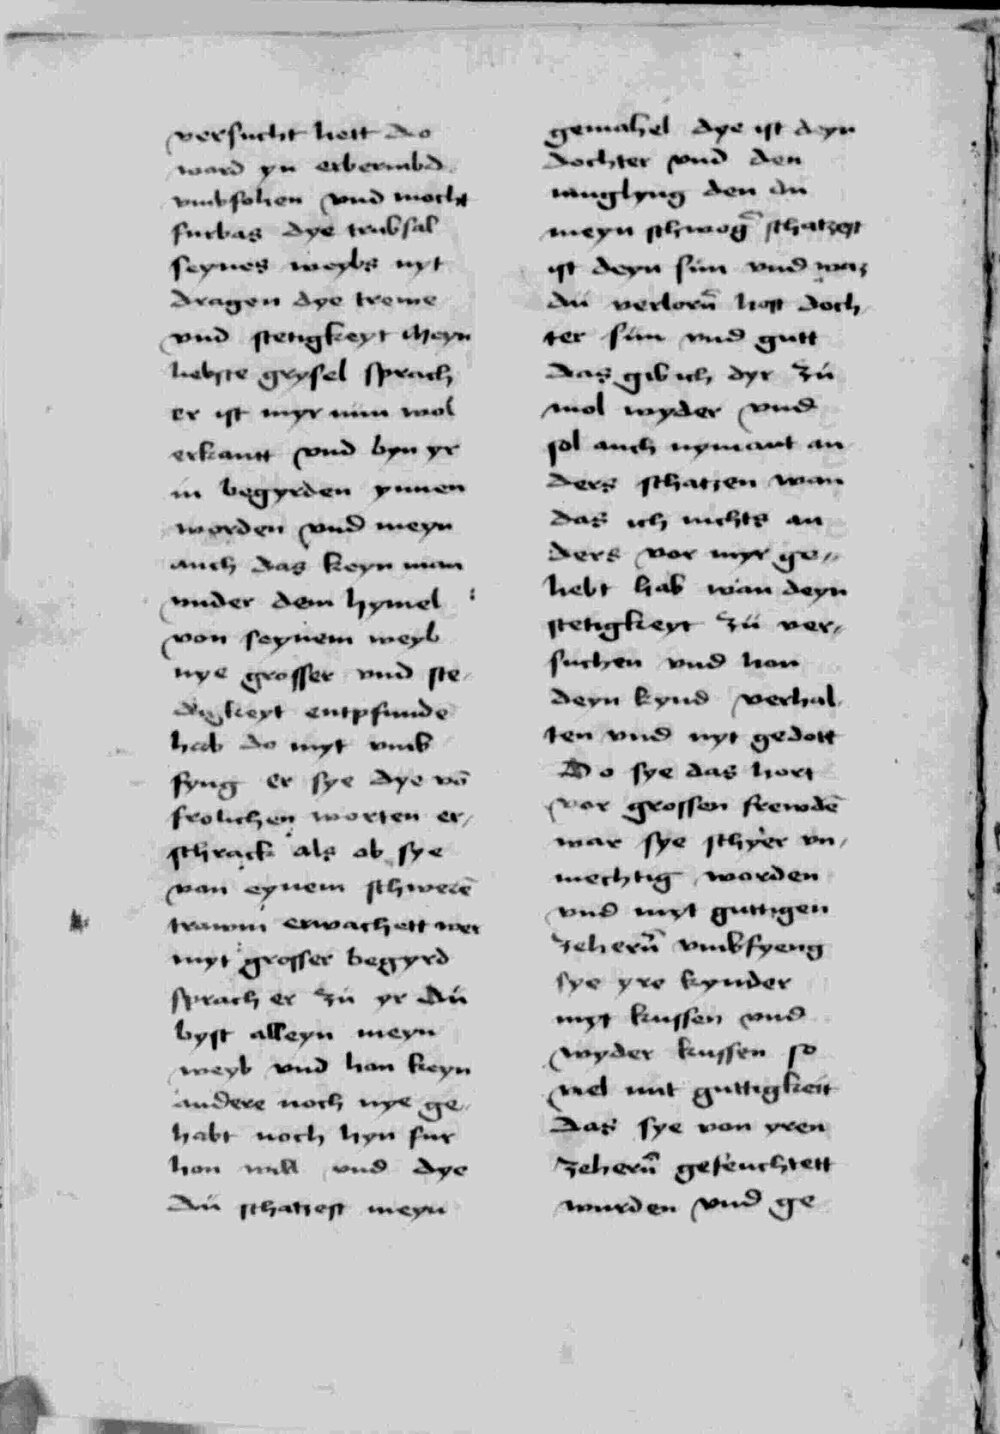 versucht hett do
ward yn erbermbd
vmbfohen vnd mocht
furbas dye trubsal
seynes weybs nyt
dragen dye trewe
vnd stetigkeyt Meyn
liebste grysel sprach
er ist myr nun wol
erkantt vnd byn yr
in begyrden ynnen
worden vnd meyn
auch das keyn man
vnder dem hymel
von seynem weyb
nye grosser vnd ste-
digkeyt entpfunde
hab do myt vmb
fyng er sye dye võ
frolichen worten er-
schrack als ob sye
von eynem schwerẽ
trawm erwachett wer
myt grosser begyrd
sprach er zü yr Dü
byst alleyn meyn
weyb vnd han keyn
andere noch nye ge-
habt noch hyn fur
hon will vnd dye
Dü schatzest meyn
gemahel dye ist deyn
dochter vnd den
iunglyng den du
meyn schwog̃ schatzest
ist deyn sün vnd waz
dü verlorñ host doch-
ter sün vnd gutt
das gib ich dyr zü
mol wyder vnd
sol auch nymant an
ders schatzen wan
das ich nichts an
ders vor myr ge-
hebt hab wan deyn
stetigkeyt zü ver-
suchen vnd hon
deyn kynd verhal-
ten vnd nyt gedott
Do sye das hort
vor grossen frewdẽ
war sye schyer vn-
mechtig worden
vnd myt guttigen
zeherñ vmbfyeng
sye yre kynder
myt kussen vnd
wyder kussen so
viel mit guttigkeit
das sye von yren
zeherñ gefeuchtett
wurden vnd ge